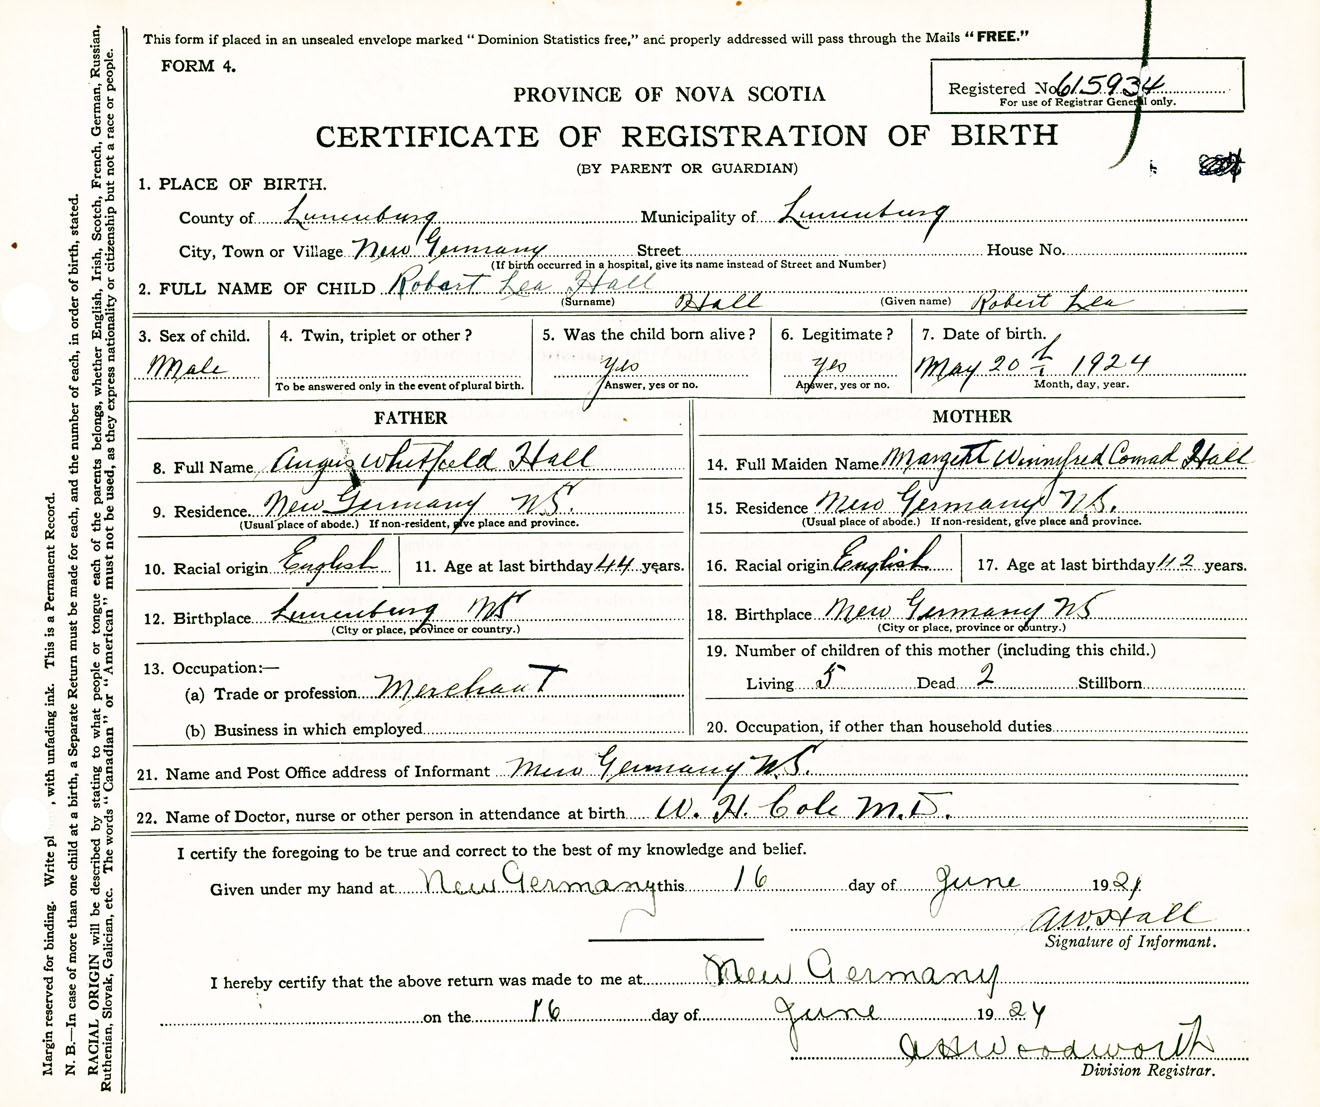 This form if placed in an unsealed envelope marked "Dominion Statistics free," and properly addressed will pass through the Mails "FREE."
FORM 4.
Registered No. 615934
For use of Registrar General only.
PROVINCE OF NOVA SCOTIA
CERTIFICATE OF REGISTRATION OF BIRTH
(BY PARENT OR GUARDIAN)
1. PLACE OF BIRTH.
County of Lunenburg Municipality of Lunenburg
City, Town or Village New Germany Street House No.
(If birth occurred in a hospital, give its name instead of Street and Number)
2. FULL NAME OF CHILD Robert Lea Hall
(Surname) Hall (Given name) Robert Lea
3. Sex of child. 4. Twin, triplet or other? 5. Was the child born alive? 6. Legitimate? 7. Date of birth.
Male yes yes May 20th 1924
To be answered only in the event of plural birth. Answer, yes or no. Answer, yes or no. Month, day, year.
FATHER
8. Full Name Angus Whitfield Hall
9. Residence New Germany N.S.
(Usual place of abode.) If non-resident, give place and province.
10. Racial origin English 11. Age at last birthday 44 years.
12. Birthplace Lunenburg NS
(City or place, province or country.)
13. Occupation:—
(a) Trade or profession Merchant
(b) Business in which employed
MOTHER
14. Full Maiden Name Margeret Winnifred Conrad Hall
15. Residence New Germany N.S.
(Usual place of abode.) If non-resident, give place and province.
16. Racial origin English 17. Age at last birthday 42 years.
18. Birthplace New Germany NS
(City or place, province or country.)
19. Number of children of this mother (including this child.)
Living 5 Dead 2 Stillborn
20. Occupation, if other than household duties
21. Name and Post Office address of Informant New Germany N.S.
22. Name of Doctor, nurse or other person in attendance at birth W. H. Cole M.D.
I certify the foregoing to be true and correct to the best of my knowledge and belief.
Given under my hand at New Germany this 16 day of June 1924
A.W. Hall
Signature of Informant.
I hereby certify that the above return was made to me at New Germany
on the 16 day of June 1924
Woodworth
Division Registrar.
Margin reserved for binding. Write pl , with unfading ink. This is a Permanent Record.
N. B.—In case of more than one child at a birth, a Separate Return must be made for each, and the number of each, in order of birth, stated.
RACIAL ORIGIN will be described by stating to what people or tongue each of the parents belongs, whether English, Irish, Scotch, French, German, Russian,
Ruthenian, Slovak, Galician, etc. The words "Canadian" or "American" must not be used, as they express nationality or citizenship but not a race or people.